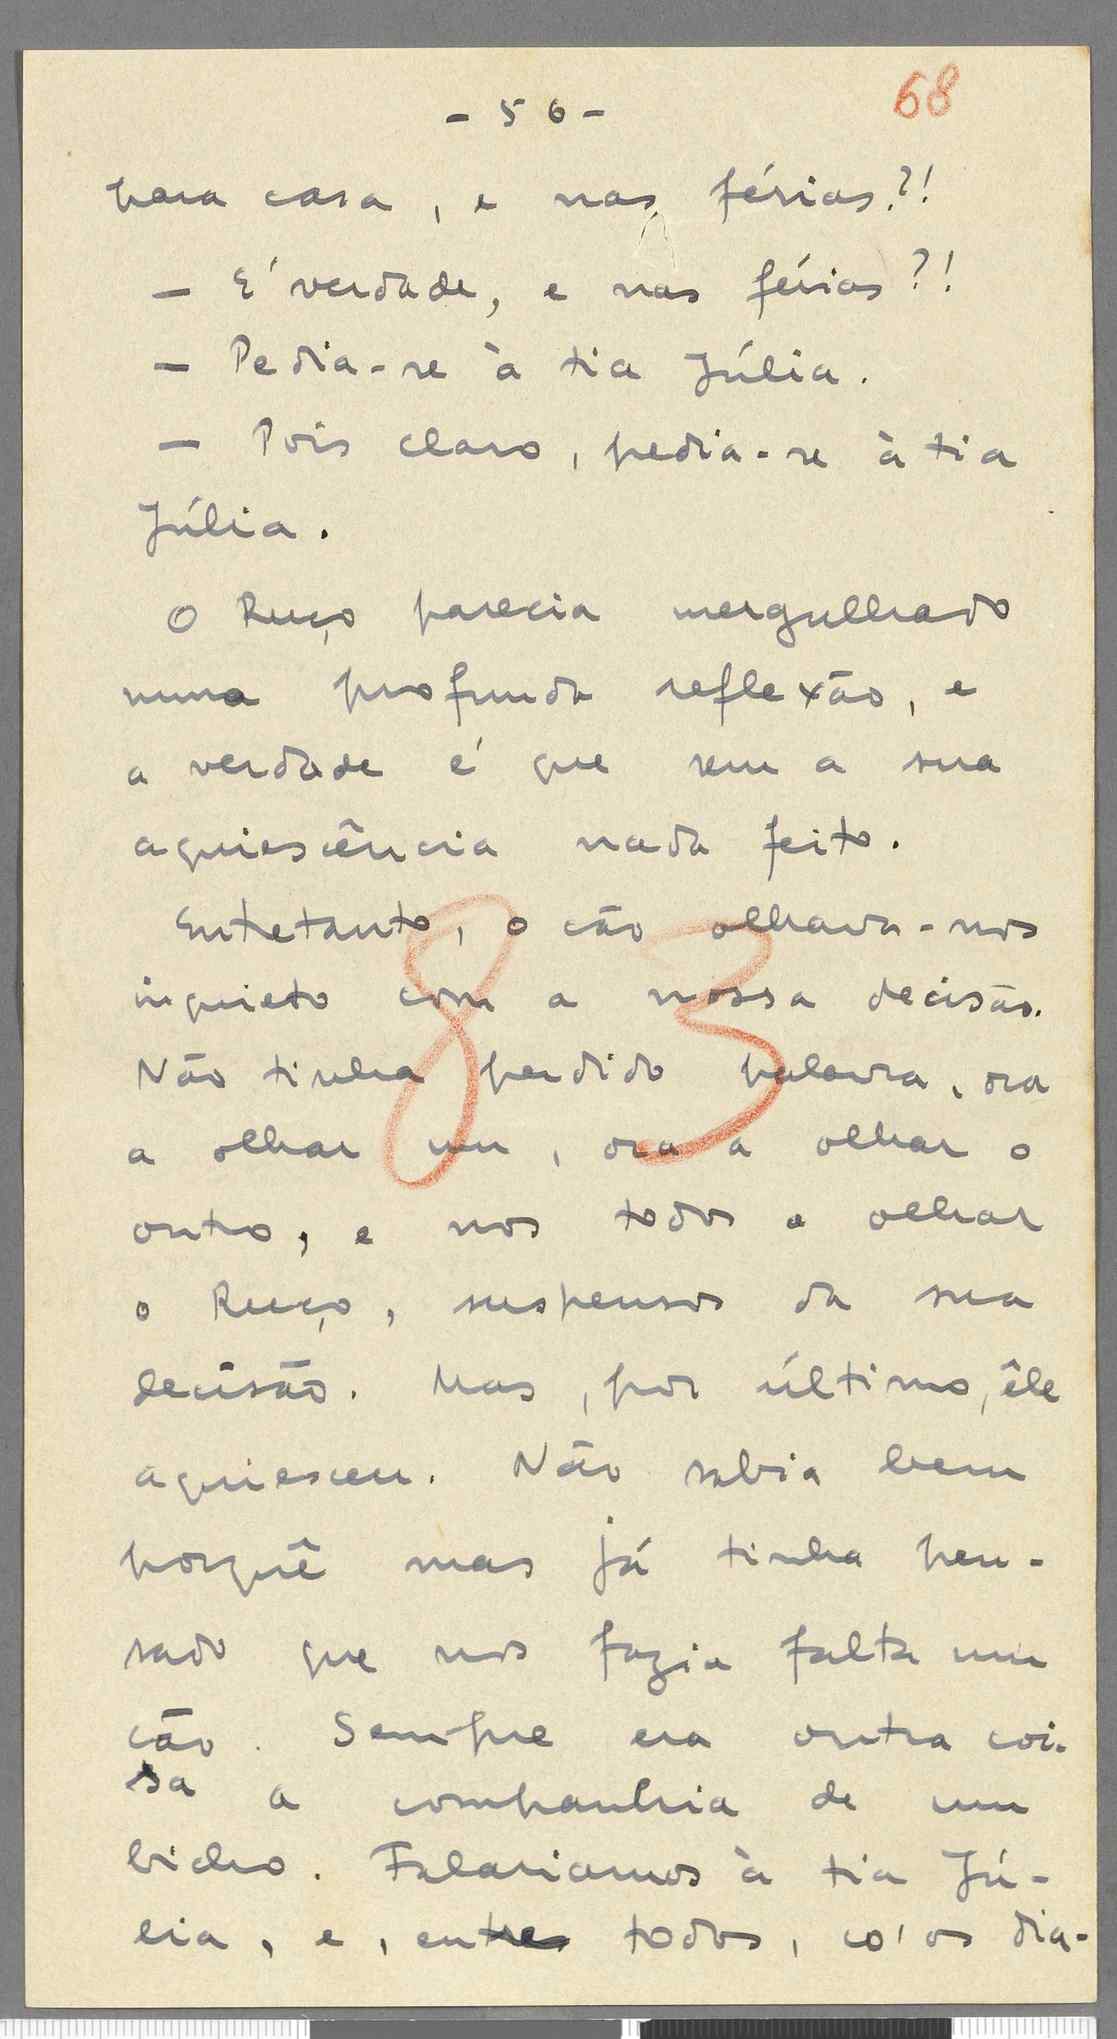 - 56 -
68
para casa, e nas férias?!
— É verdade, e nas férias?!
— Pedia-se à tia Júlia.
— Pois claro, pedia-se à tia
Júlia.
O Ruço parecia mergulhado
numa profunda reflexão, e
a verdade é que sem a sua
aquiescência nada feito.
Entretanto, o cão olhava-nos
inquieto com a nossa decisão.
83
Não tinha perdido palavra, ora
a olhar um, ora a olhar o
outro, e nós todos a olhar
o Ruço, suspensos da sua
decisão. Mas, por último, êle
aquiesceu. Não sabia bem
porquê mas já tinha pen-
sado que nos fazia falta um
cão. Sempre era outra coi-
sa a companhia de um
bicho. Falaríamos à tia Jú-
lia, e, entre todos, co'os dia-